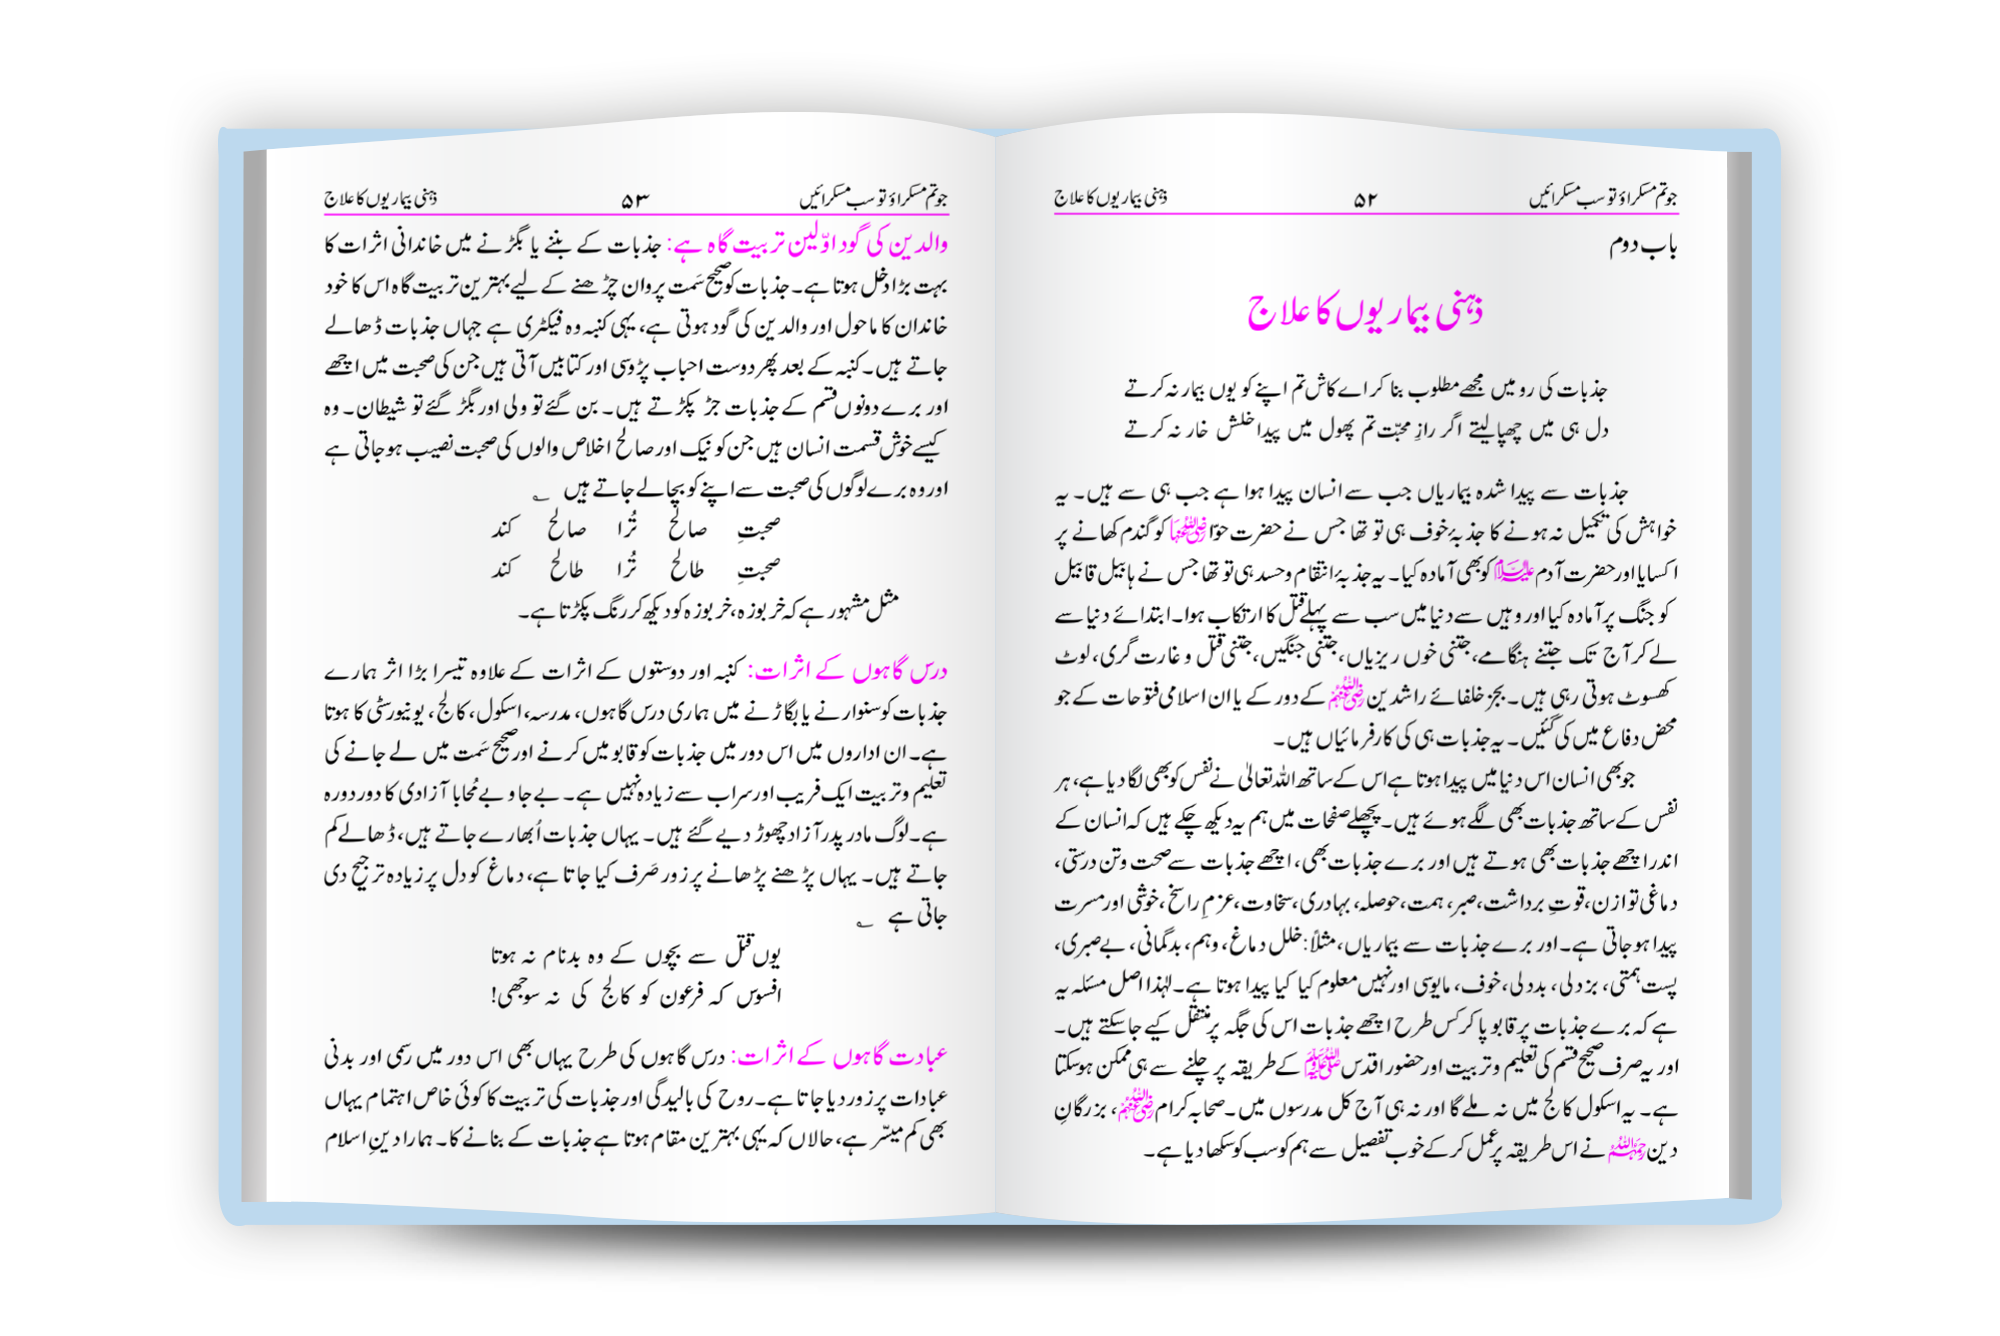 جو تم مسکراؤ تو سب مسکرائیں ۵۲ ذہنی بیماریوں کا علاج
باب دوم
ذہنی بیماریوں کا علاج
جذبات کی رو میں مجھے مطلوب بنا کر اے کاش تم اپنے کو یوں بیمار نہ کرتے
دل ہی میں چھپا لیتے اگر رازِ محبّت تم پھول میں پیدا خلش خار نہ کرتے
جذبات سے پیدا شدہ بیماریاں جب سے انسان پیدا ہوا ہے جب ہی سے ہیں۔ یہ
خواہش کی تکمیل نہ ہونے کا جذبۂ خوف ہی تو تھا جس نے حضرت حوّا رضی اللہ عنہا کو گندم کھانے پر
اکسایا اور حضرت آدم علیہ السلام کو بھی آمادہ کیا۔ یہ جذبۂ انتقام و حسد ہی تو تھا جس نے ہابیل قابیل
کو جنگ پر آمادہ کیا اور وہیں سے دنیا میں سب سے پہلے قتل کا ارتکاب ہوا۔ ابتدائے دنیا سے
لے کر آج تک جتنے ہنگامے، جتنی خوں ریزیاں، جتنی جنگیں، جتنی قتل و غارت گری، لوٹ
کھسوٹ ہوتی رہی ہیں۔ بجز خلفائے راشدین رضی اللہ عنہم کے دور کے یا ان اسلامی فتوحات کے جو
محض دفاع میں کی گئیں۔ یہ جذبات ہی کی کارفرمائیاں ہیں۔
جو بھی انسان اس دنیا میں پیدا ہوتا ہے اس کے ساتھ اللہ تعالیٰ نے نفس کو بھی لگا دیا ہے، ہر
نفس کے ساتھ جذبات بھی لگے ہوئے ہیں۔ پچھلے صفحات میں ہم یہ دیکھ چکے ہیں کہ انسان کے
اندر اچھے جذبات بھی ہوتے ہیں اور برے جذبات بھی، اچھے جذبات سے صحت و تن درستی،
دماغی توازن، قوتِ برداشت، صبر، ہمت، حوصلہ، بہادری، سخاوت، عزمِ راسخ، خوشی اور مسرت
پیدا ہو جاتی ہے۔ اور برے جذبات سے بیماریاں، مثلاً: خلل دماغ، وہم، بدگمانی، بے صبری،
پست ہمتی، بزدلی، بددلی، خوف، مایوسی اور نہیں معلوم کیا کیا پیدا ہوتا ہے۔ لہٰذا اصل مسئلہ یہ
ہے کہ برے جذبات پر قابو پا کر کس طرح اچھے جذبات اس کی جگہ پر منتقل کیے جاسکتے ہیں۔
اور یہ صرف صحیح قسم کی تعلیم و تربیت اور حضور اقدس صلی اللہ علیہ وسلم کے طریقہ پر چلنے سے ہی ممکن ہوسکتا
ہے۔ یہ اسکول کالج میں نہ ملے گا اور نہ ہی آج کل مدرسوں میں۔ صحابہ کرام رضی اللہ عنہم، بزرگانِ
دین رحمہم اللہ نے اس طریقہ پر عمل کر کے خوب تفصیل سے ہم کو سب کو سکھا دیا ہے۔
جو تم مسکراؤ تو سب مسکرائیں ۵۳ ذہنی بیماریوں کا علاج
والدین کی گود اوّلین تربیت گاہ ہے: جذبات کے بننے یا بگڑنے میں خاندانی اثرات کا
بہت بڑا دخل ہوتا ہے۔ جذبات کو صحیح سَمت پروان چڑھنے کے لیے بہترین تربیت گاہ اس کا خود
خاندان کا ماحول اور والدین کی گود ہوتی ہے، یہی کنبہ وہ فیکٹری ہے جہاں جذبات ڈھالے
جاتے ہیں۔ کنبہ کے بعد پھر دوست احباب پڑوسی اور کتابیں آتی ہیں جن کی صحبت میں اچھے
اور برے دونوں قسم کے جذبات جڑ پکڑتے ہیں۔ بن گئے تو ولی اور بگڑ گئے تو شیطان۔ وہ
کیسے خوش قسمت انسان ہیں جن کو نیک اور صالح اخلاص والوں کی صحبت نصیب ہو جاتی ہے
اور وہ برے لوگوں کی صحبت سے اپنے کو بچالے جاتے ہیں ؎
صحبتِ صالح تُرا صالح کند
صحبتِ طالح تُرا طالح کند
مثل مشہور ہے کہ خربوزہ، خربوزہ کو دیکھ کر رنگ پکڑتا ہے۔
درس گاہوں کے اثرات: کنبہ اور دوستوں کے اثرات کے علاوہ تیسرا بڑا اثر ہمارے
جذبات کو سنوارنے یا بگاڑنے میں ہماری درس گاہوں، مدرسہ، اسکول، کالج، یونیورسٹی کا ہوتا
ہے۔ ان اداروں میں اس دور میں جذبات کو قابو میں کرنے اور صحیح سَمت میں لے جانے کی
تعلیم و تربیت ایک فریب اور سراب سے زیادہ نہیں ہے۔ بے جا و بے مُحابا آزادی کا دور دورہ
ہے۔ لوگ مادر پدر آزاد چھوڑ دیے گئے ہیں۔ یہاں جذبات اُبھارے جاتے ہیں، ڈھالے کم
جاتے ہیں۔ یہاں پڑھنے پڑھانے پر زور صَرف کیا جاتا ہے، دماغ کو دل پر زیادہ ترجیح دی
جاتی ہے ؎
یوں قتل سے بچوں کے وہ بدنام نہ ہوتا
افسوس کہ فرعون کو کالج کی نہ سوجھی!
عبادت گاہوں کے اثرات: درس گاہوں کی طرح یہاں بھی اس دور میں رسمی اور بدنی
عبادات پر زور دیا جاتا ہے۔ روح کی بالیدگی اور جذبات کی تربیت کا کوئی خاص اہتمام یہاں
بھی کم میسّر ہے، حالاں کہ یہی بہترین مقام ہوتا ہے جذبات کے بنانے کا۔ ہمارا دینِ اسلام